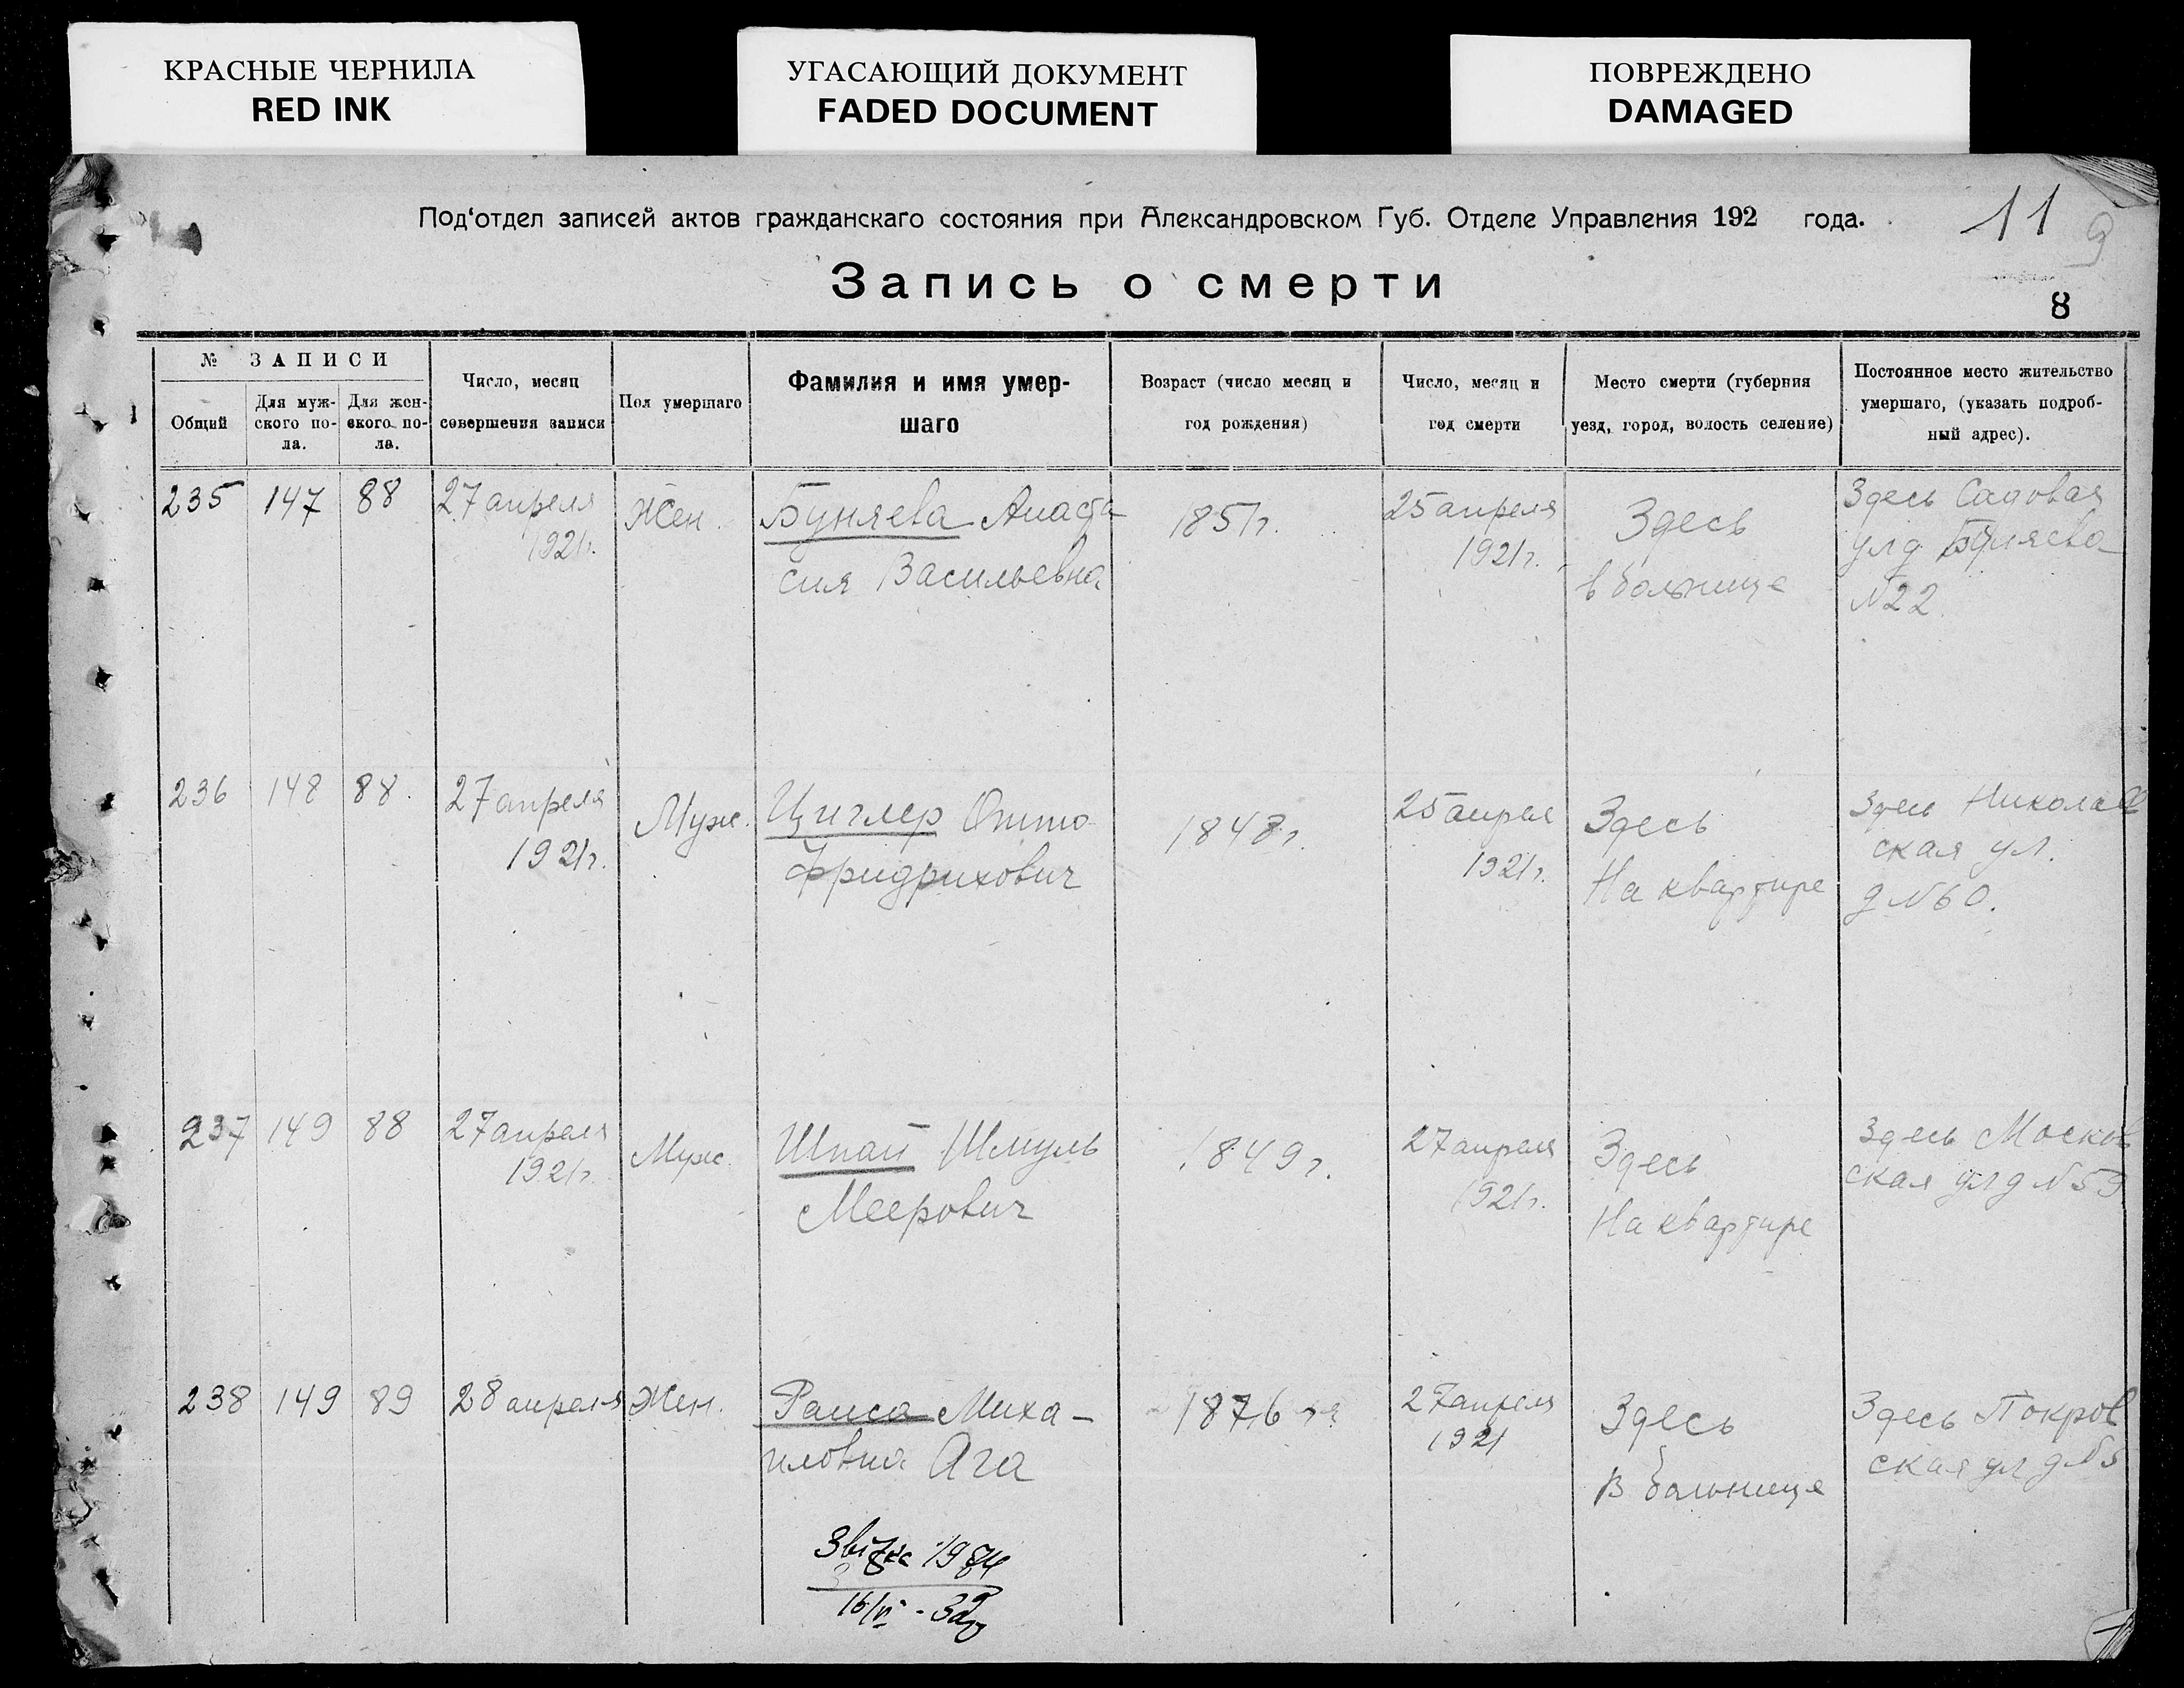 КРАСНЫЕ ЧЕРНИЛА
RED INK
УГАСАЮЩИЙ ДОКУМЕНТ
FADED DOCUMENT
ПОВРЕЖДЕНО
DAMAGED
Под'отдел записей актов гражданскаго состояния при Александровском Губ. Отделе Управления 192 года.
11
9
Запись о смерти
8
№ ЗАПИСИ
Общий
Для муж-
ского по-
ла.
Для жен-
ского по-
ла.
Число, месяц
совершения записи
Пол умершаго
Фамилия и имя умер-
шаго
Возраст (число месяц и
год рождения)
Число, месяц и
год смерти
Место смерти (губерния
уезд, город, волость селение)
Постоянное место жительство
умершаго, (указать подроб-
ный адрес).
235
147
88
27 апреля
1921г.
Жен.
Буняева Анаста
сия Васильевна
1851г.
25 апреля
1921г.
Здесь
в больнице
Здесь Садовая
ул д Буняева
N22
236
148
88.
27 апреля
1921г.
Муж.
Циглер Отто
Фридрихович
1848г.
25 апреля
1921г.
Здесь
На квартире
Здесь Николаев
ская ул.
д N60.
237
149
88
27 апреля
1921г.
Муж.
Шпай Шмуль
Меерович
1849г.
27 апреля
1921г.
Здесь
На квартире
Здесь Москов
ская ул д N59
238
149
89
28 апреля
Жен.
Раиса Миха-
иловна Ага
1876
27 апреля
1921
Здесь
В больнице
Здесь Покров
ская ул д N5